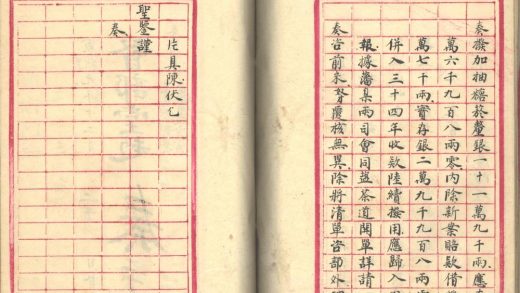 奏撥加抽糖菸釐銀一十一萬九千兩應
萬六千九百八兩零內除新案賠欵借
萬七千兩實存銀二萬九千九百八兩
併入三十四年收欵陸續接用應歸入
報據藩臬兩司會同鹽茶道開單詳請
奏咨前來覆核無異除將清單咨部外
片具陳伏乞
聖鑒謹
奏